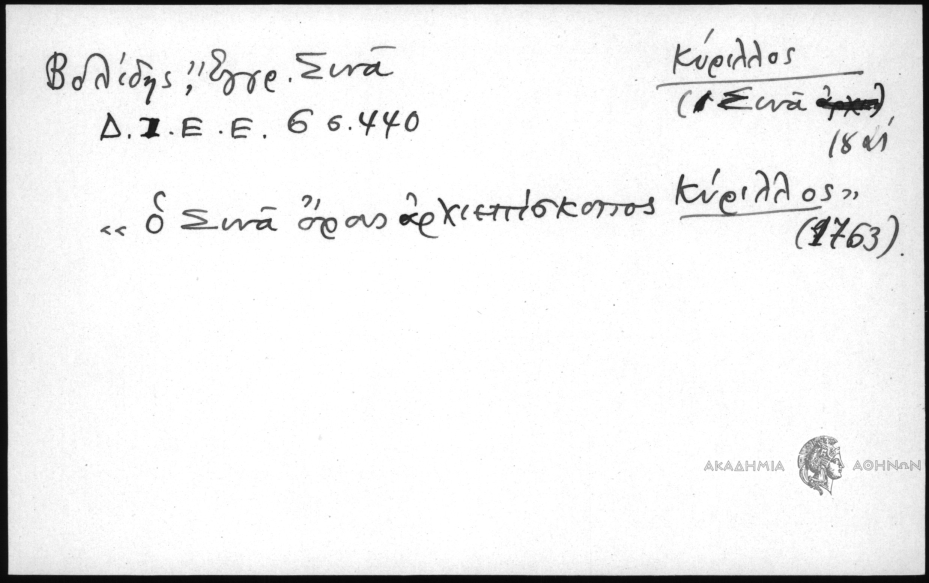 Βολίδης, Ἔγγρ. Σινᾶ
Δ.Ι.Ε.Ε. 6 σ. 440
Κύριλλος
( Σινᾶ
18 αἰ
« ὁ Σινᾶ ὄρους ἀρχιεπίσκοπος Κύριλλος »
(1763).
ΑΚΑΔΗΜΙΑ ΑΘΗΝΩΝ